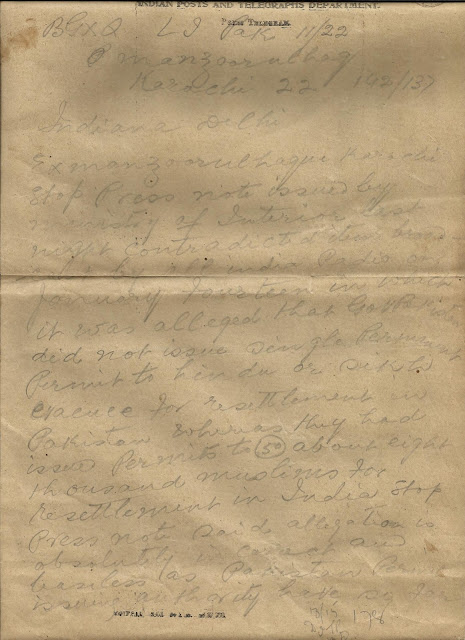 INDIAN POSTS AND TELEGRAPHS DEPARTMENT.
Press Telegram.
LI Pak 11/22
O manzoorulhaq
Karachi 22 142/137
Indiana Delhi
Exmanzoorulhaque Karachi
Stop Press note issued by
ministry of Interior last
night contradicted item
by all india Radio on
January fourteen in which
it was alleged that
did not issue single Permanent
Permit to hindu or sikh
evacuee for resettlement in
Pakistan whereas they had
issued Permits to (50) about eight
thousand muslims for
resettlement in India Stop
Press note said allegation is
absolutely incorrect and
baseless as Pakistan
issuing authority have so far